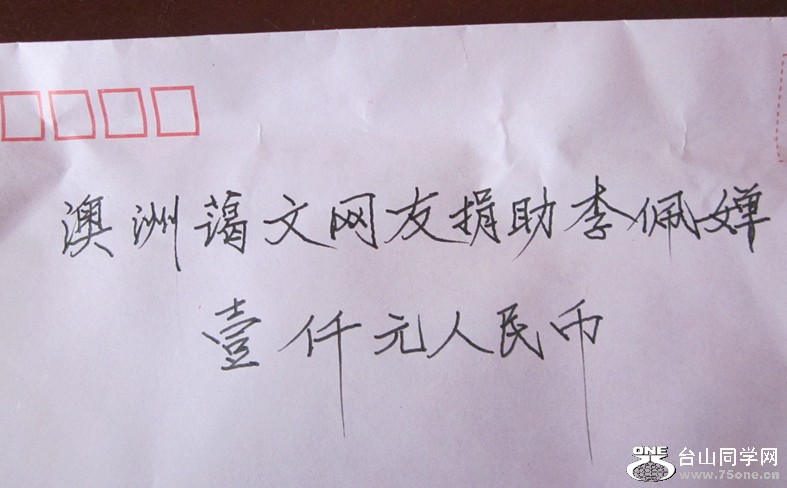 澳洲蔼文网友捐助李佩婵
壹仟元人民币
ONE
台山同学网
www.75one.cn